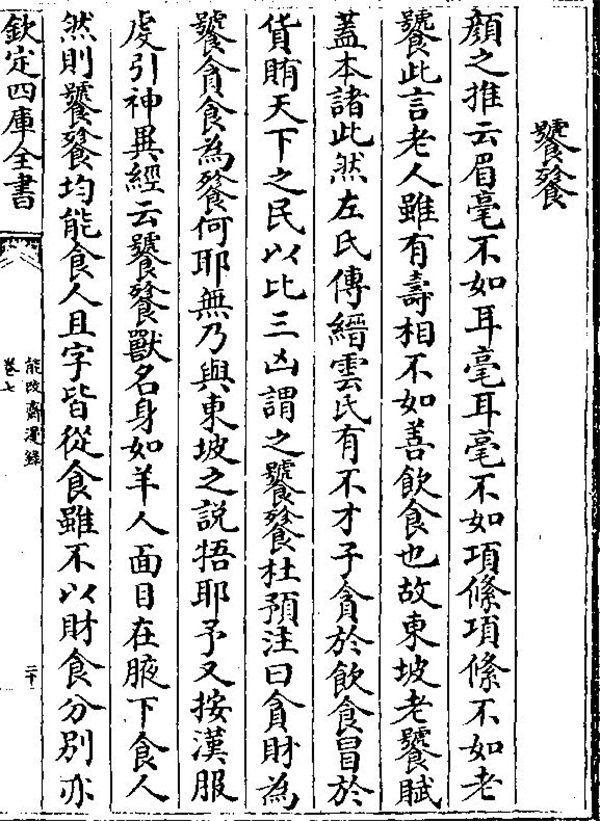 饕餮
顔之推云眉毫不如耳毫耳毫不如項絛項絛不如老
饕此言老人雖有壽相不如善飲食也故東坡老饕賦
蓋本諸此然左氏傳縉雲氏有不才子貪於飲食冒於
貨賄天下之民以比三凶謂之饕餮杜預注曰貪財為
饕貪食為餮何耶無乃與東坡之說牾耶予又按漢服
虔引神異經云饕餮獸名身如羊人面目在腋下食人
然則饕餮均能食人且字皆從食雖不以財食分別亦
欽定四庫全書
能改齋漫録
卷七
二十